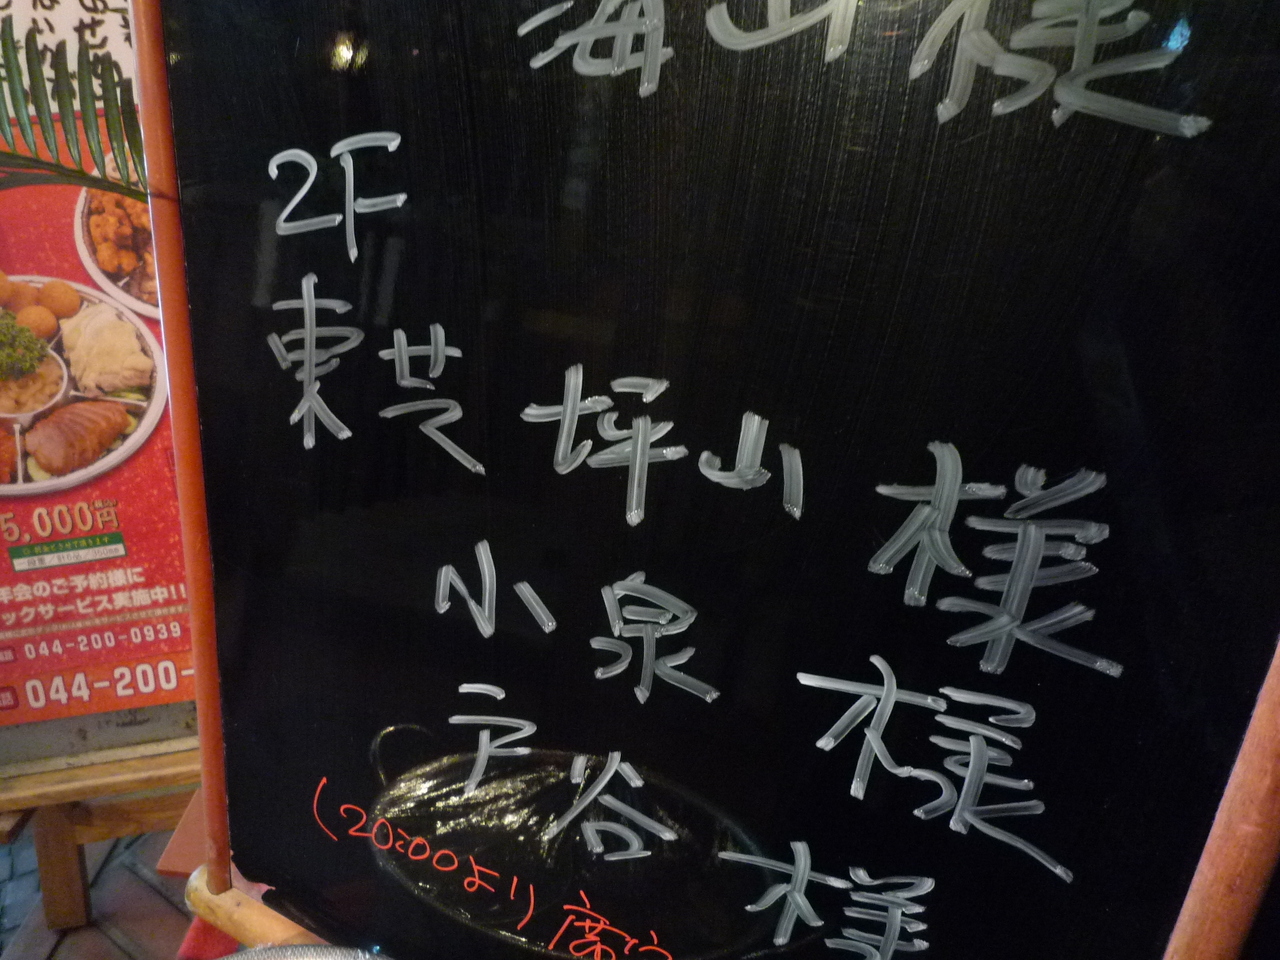 海山様
2F
東芝 坪山 様
小泉 様
戸谷 様
(20:00より
5,000円
年会のご予約様に
ックサービス実施中!!
044-200-0939
044-200-